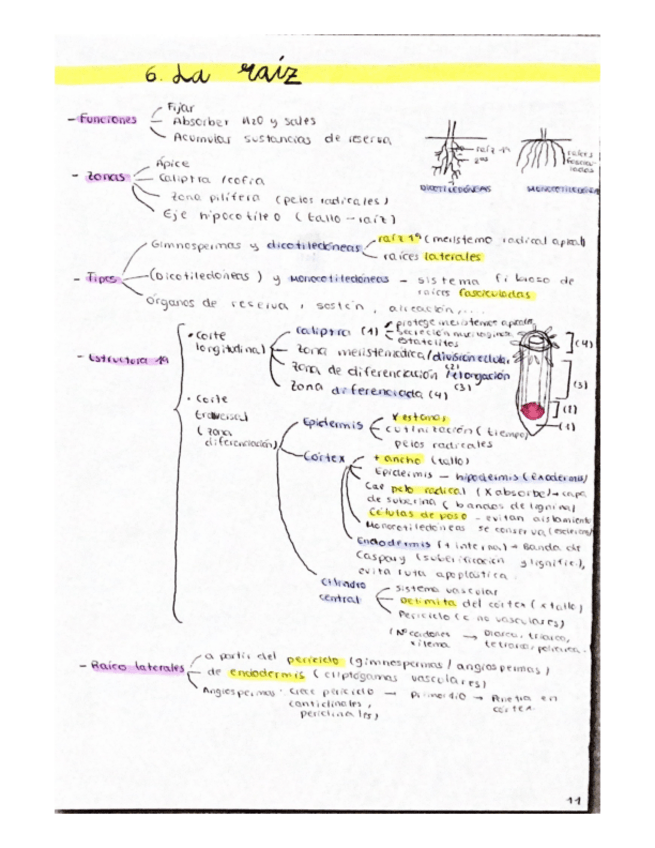 6. La raíz
- Funciones
Fijar
Absorber H2O y sales
Acumular sustancias de reserva
raíz 1ª
2ªs
raíces fascicu-
ladas
DICOTILEDÓNEAS
MONOCOTILEDÓNEAS
- Zonas
Ápice
Caliptra / cofia
Zona pilífera (pelos radicales)
Eje hipocotileo (tallo - raíz)
- Tipos
Gimnospermas y dicotiledóneas
raíz 1ª (meristemo radical apical)
raíces laterales
(Dicotiledóneas) y Monocotiledóneas - sistema fibroso de
raíces fasciculadas
Órganos de reserva, sostén, aireación,....
- Estructura 1ª
• Corte
longitudinal
Caliptra (1)
protege meristemo apical
secreción mucilaginosa
Estatolitos
Zona meristemática / división celular
(2)
Zona de diferenciación / elongación
(3)
Zona diferenciada (4)
(4)
(3)
(2)
(1)
• Corte
trasversal
(zona
diferenciación)
Epidermis
x estomas
cutinización (tiempo)
pelos radicales
Córtex
+ ancho (tallo)
Epidermis - hipodermis (exodermis)
Cae pelo radical (x absorbe) → capa
de suberina (bandas de lignina)
Células de paso - evitan aislamiento
Monocotiledóneas se conserva
Endodermis (+ interna) → Banda de
Caspary (suberificación y lignific.),
evita ruta apoplástica.
Cilindro
central
sistema vascular
Delimita del córtex (x tallo)
Periciclo (c no vasculares)
(Nº cordones → Diarca, triarca,
xilema tetrarca, poliarca.
- Raíces laterales
a partir del periciclo (gimnospermas / angiospermas)
de endodermis (criptógamas vasculares)
Angiospermas: Crece periciclo → Primordio → Penetra en
(anticlinales, córtex.
periclinales)
11